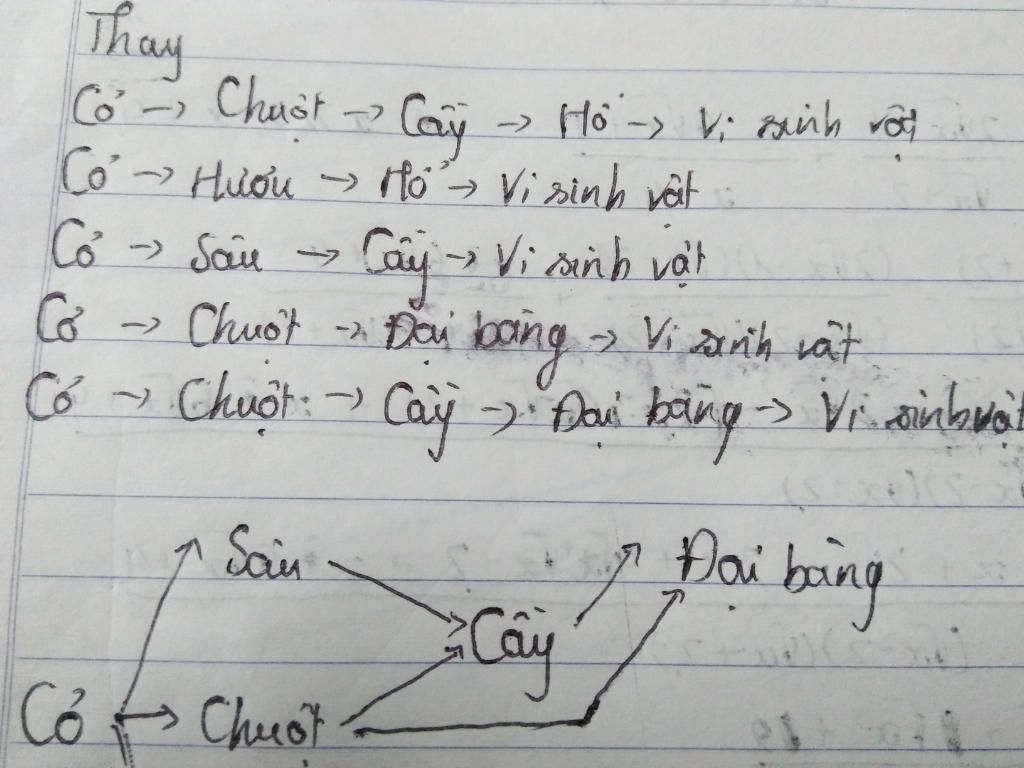 Thay
Cỏ → Chuột → Cầy → Hổ → Vi sinh vật
Cỏ → Hươu → Hổ → Vi sinh vật
Cỏ → Sâu → Cầy → Vi sinh vật
Cỏ → Chuột → Đại bàng → Vi sinh vật
Cỏ → Chuột → Cầy → Đại bàng → Vi sinh vật
Sâu Đại bàng
Cầy
Cỏ → Chuột